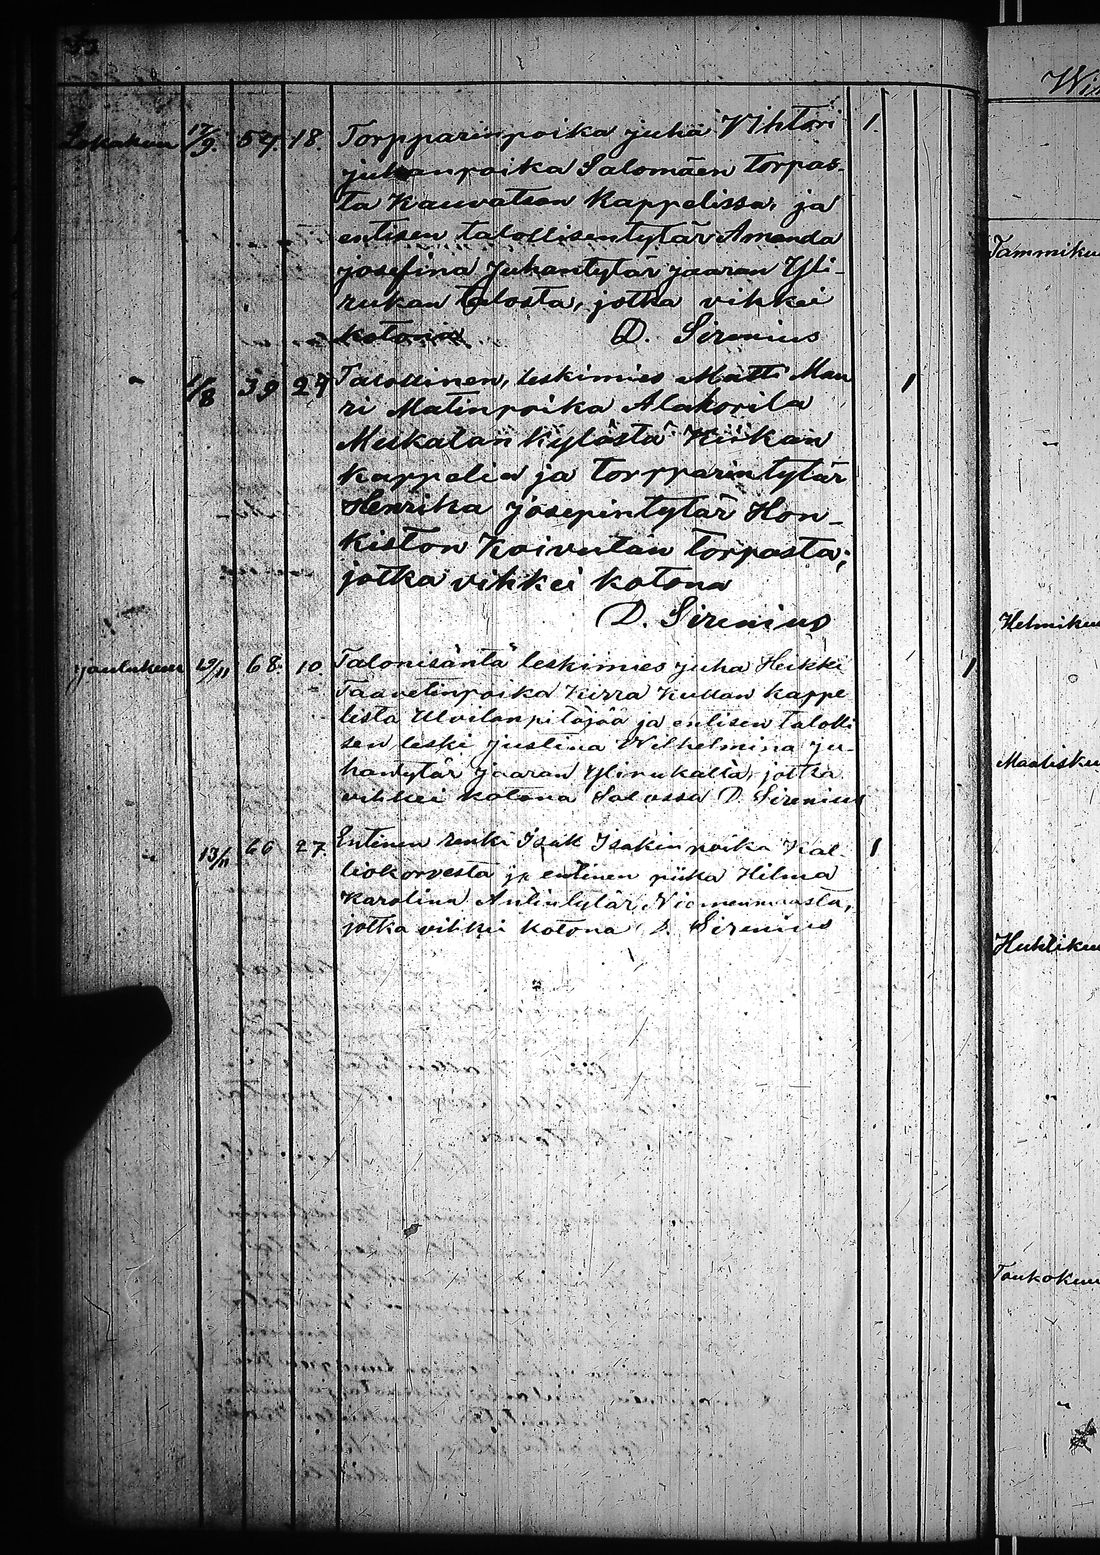 Lokakuu 17/9. 54. 18. Torpparinpoika Juha Vihtori 1.
Juhanpoika Salomäen torpas-
ta Kauvatsan Kappelissa, ja
entisen talollisentytär Amanda
Josefina Juhantytär Jaaran Yli-
rukan talosta, jotka vihkei
kotona D. Sirenius
" 1/8 39 27 Talollinen, leskimies Matti Mau 1
ri Matinpoika Alakorila
Meskalan kylästä Kiikan
kappelia ja torpparintytär
Henrika Josepintytär Hon-
kiston Koivulan torpasta;
jotka vihkei kotona
D. Sirenius
Joulukuu 29/11 68. 10. Talonisäntä leskimies Juha Heikki 1
Taavetinpoika Kirra Kullan kappe
lista Ulvilan pitäjää ja entisen talolli
sen leski Justina Wilhelmina Ju-
hantytär Jaaran Ylirukalta, jotka
vihkei kotona Salossa D. Sirenius
" 13/11 66 27. Entinen renki Isak Isakinpoika Kal- 1
liokorvesta ja entinen piika Hilma
Karolina Antintytär Niemenmaasta,
jotka vihkei kotona D. Sirenius
Tammikuu
"
Helmikuu
Maalisku
Huhtikuu
"
Toukokuu
"